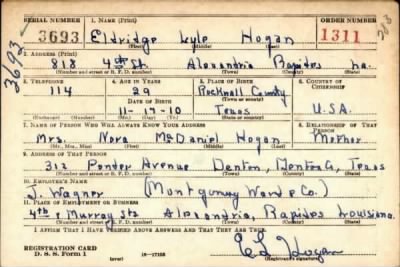 SERIAL NUMBER
1. NAME (Print)
ORDER NUMBER
3693
Eldridge Lyle Hogan
1311
(First) (Middle) (Last)
3693
208
2. ADDRESS (Print)
818 4th St. Alexandria Rapides La.
(Number and street or R. F. D. number) (Town) (County) (State)
3. TELEPHONE
4. AGE IN YEARS
5. PLACE OF BIRTH
6. COUNTRY OF CITIZENSHIP
114
29
Rockwall County
DATE OF BIRTH
(Town or county)
11-17-10
Texas
U.S.A.
(Exchange) (Number)
(Mo.) (Day) (Yr.)
(State or country)
7. NAME OF PERSON WHO WILL ALWAYS KNOW YOUR ADDRESS
8. RELATIONSHIP OF THAT PERSON
Mrs. Nora McDaniel Hogan
Mother
(Mr., Mrs., Miss) (First) (Middle) (Last)
9. ADDRESS OF THAT PERSON
312 Ponder Avenue Denton, Texas
(Number and street or R. F. D. number) (Town) (County) (State)
10. EMPLOYER'S NAME
J. Wagner (Montgomery Ward & Co.)
11. PLACE OF EMPLOYMENT OR BUSINESS
4th & Murray Sts Alexandria, Rapides Louisiana
(Number and street or R. F. D. number) (Town) (County) (State)
I AFFIRM THAT I HAVE VERIFIED ABOVE ANSWERS AND THAT THEY ARE TRUE.
REGISTRATION CARD
D. S. S. Form 1
(over)
E L Hogan
(Registrant's signature)